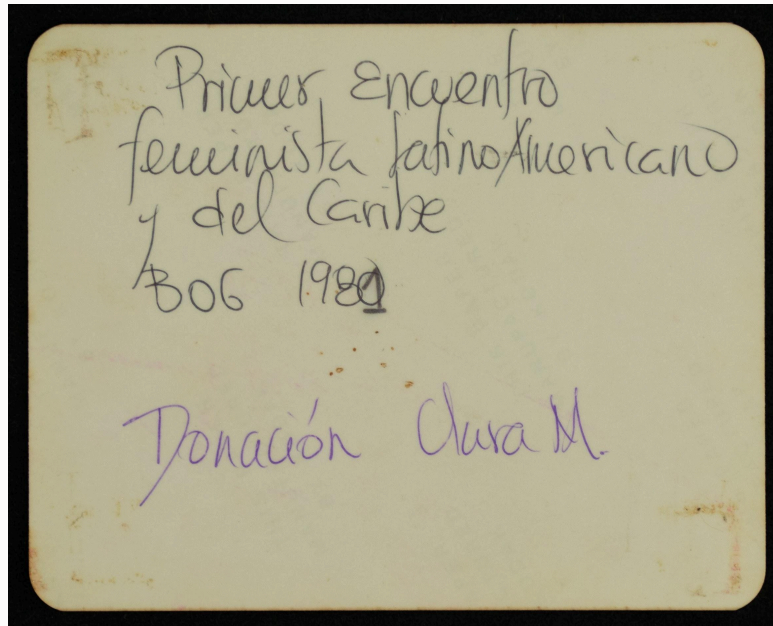 Primer Encuentro
feminista latinoAmericano
y del Caribe
BOG 1981
Donación Clara M.